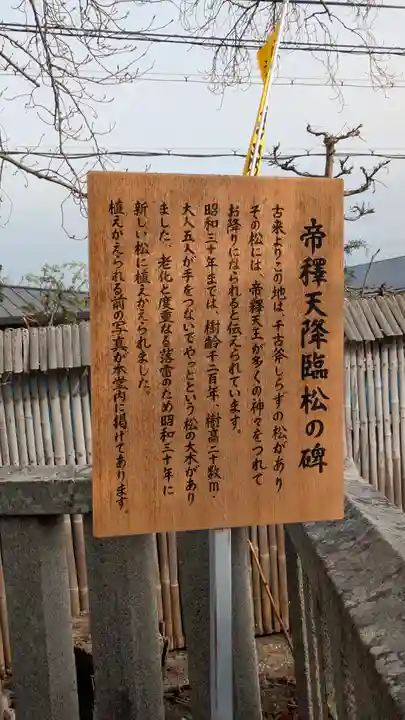 帝釋天降臨松の碑
古来よりこの地は、千古斧しらずの松があり
その松には、帝釋天王が多くの神々をつれて
お降りになられると伝えられています。
昭和二十年までは、樹齢千二百年、樹高二十数m・
大人五人が手をつないでやっとという松の大木があり
ました。老化と度重なる落雷のため昭和二十年に
新しい松に植えかえられました。
植えかえられる前の写真が本堂内に掲げてあります。